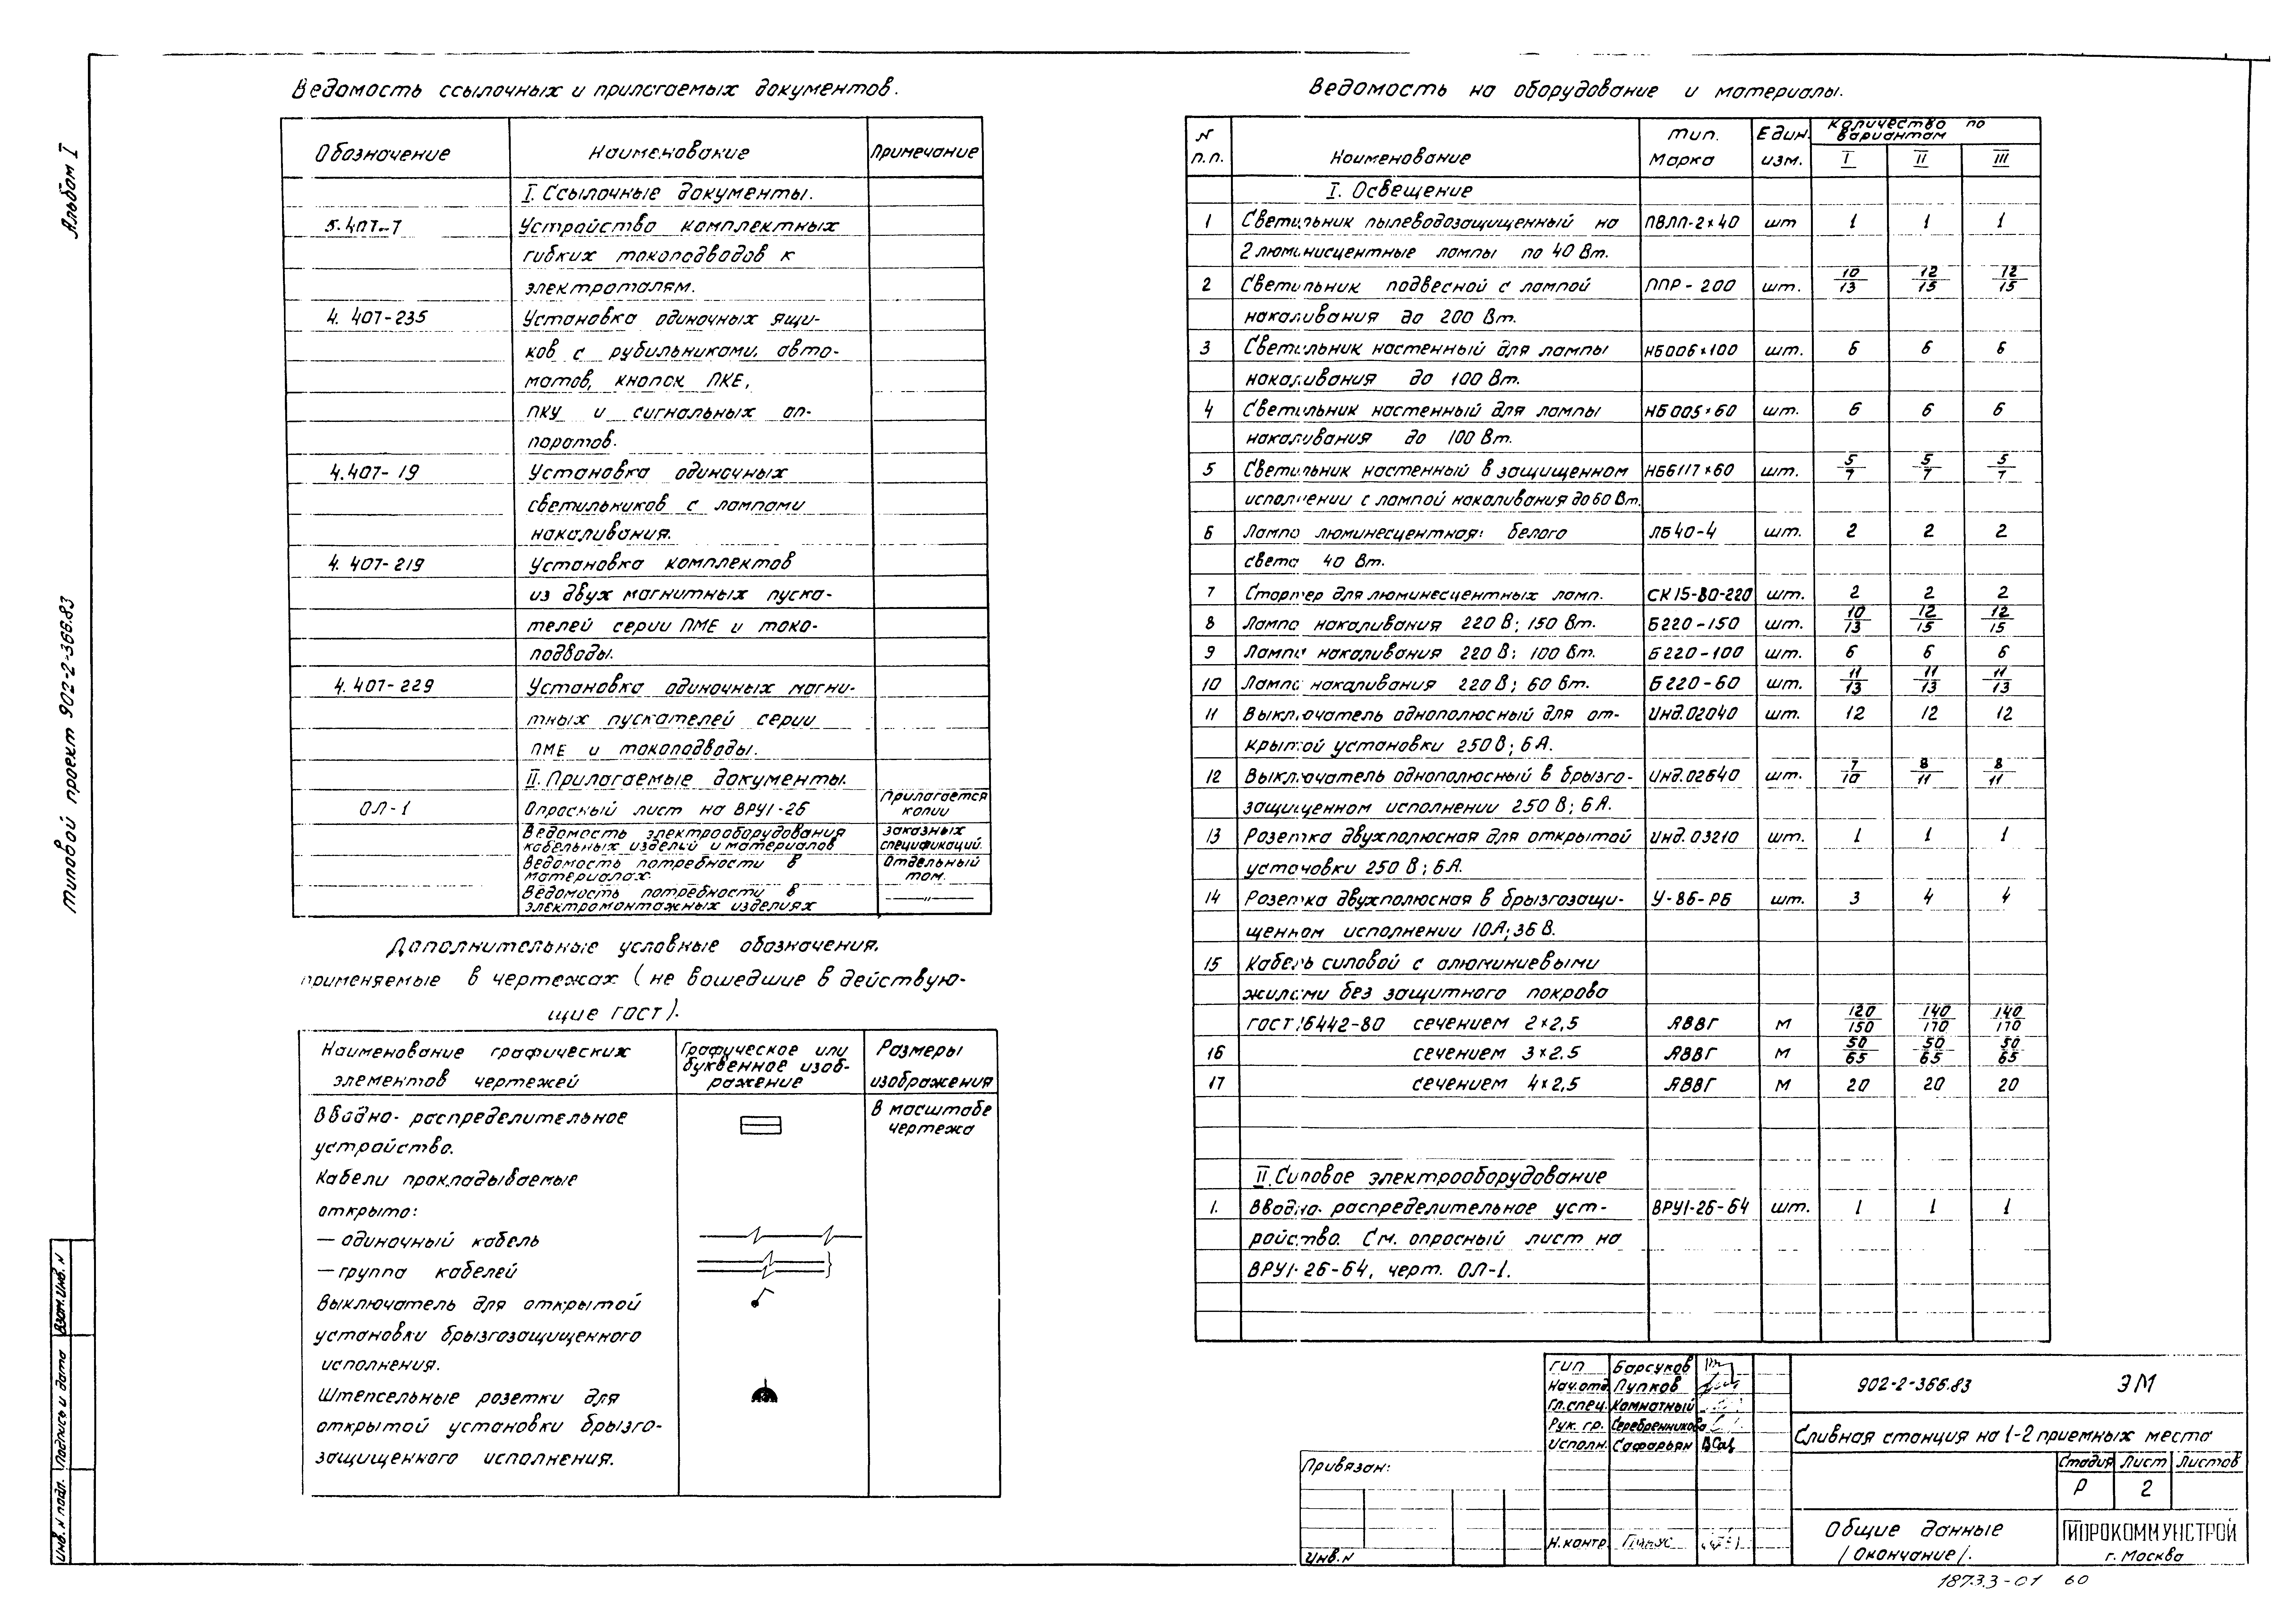 Альбом I
Типовой проект 902-2-366.83
Взам.инв.N
Подпись и дата
Инв.N подл.
Ведомость ссылочных и прилагаемых документов.
Обозначение Наименование Примечание
I. Ссылочные документы.
5.407-7 Устройство комплектных
гибких токоподводов к
электроталям.
4.407-235 Установка одиночных ящи-
ков с рубильниками, авто-
матов, кнопок ПКЕ,
ПКУ и сигнальных ап-
поратов.
4.407-19 Установка одиночных
светильников с лампами
накаливания.
4.407-219 Установка комплектов
из двух магнитных пуска-
телей серии ПМЕ и токо-
подводы.
4.407-229 Установка одиночных магни-
тных пускателей серии
ПМЕ и токоподводы.
II. Прилагаемые документы.
ОЛ-1 Опросный лист на ВРУ1-26 Прилагается копии
Ведомость электрооборудования заказных
кабельных изделий и материалов спецификаций.
Ведомость потребности в Отдельный
материалах том.
Ведомость потребности в
электромонтажных изделиях —"—
Дополнительные условные обозначения,
применяемые в чертежах (не вошедшие в действую-
щие ГОСТ).
Наименование графических элементов чертежей
Графическое или буквенное изоб-ражение
Размеры изображения
Вводно-распределительное В масштабе
устройство. чертежа
Кабели прокладываемые
открыто:
— одиночный кабель
— группа кабелей
Выключатель для открытой
установки брызгозащищенного
исполнения.
Штепсельные розетки для
открытой установки брызго-
защищенного исполнения.
Ведомость на оборудование и материалы.
N п.п. Наименование Тип. Марка Един. изм. Количество по вариантам
I II III
I. Освещение
1 Светильник пылеводозащищенный на ПВЛП-2×40 шт 1 1 1
2 люминисцентные лампы по 40 Вт.
2 Светильник подвесной с лампой ППР-200 шт. 10/13 12/15 12/15
накаливания до 200 Вт.
3 Светильник настенный для лампы НБ006×100 шт. 6 6 6
накаливания до 100 Вт.
4 Светильник настенный для лампы НБ005×60 шт. 6 6 6
накаливания до 100 Вт.
5 Светильник настенный в защищенном НББ117×60 шт. 5/7 5/7 5/7
исполнении с лампой накаливания до 60 Вт.
6 Лампа люминесцентная: белого ЛБ40-4 шт. 2 2 2
света 40 Вт.
7 Стартер для люминесцентных ламп. СК15-80-220 шт. 2 2 2
8 Лампа накаливания 220 В; 150 Вт. Б220-150 шт. 10/13 12/15 12/15
9 Лампа накаливания 220 В; 100 Вт. Б220-100 шт. 6 6 6
10 Лампа накаливания 220 В; 60 Вт. Б220-60 шт. 11/13 11/13 11/13
11 Выключатель однополюсный для от- Инд.02040 шт. 12 12 12
крытой установки 250 В; 6 А.
12 Выключатель однополюсный в брызго- Инд.02640 шт. 7/10 8/11 8/11
защищенном исполнении 250 В; 6 А.
13 Розетка двухполюсная для открытой Инд.03210 шт. 1 1 1
установки 250 В; 6А.
14 Розетка двухполюсная в брызгозащи- У-86-РБ шт. 3 4 4
щенном исполнении 10А; 36 В.
15 Кабель силовой с алюминиевыми
жилами без защитного покрова
ГОСТ 16442-80 сечением 2×2,5 АВВГ м 120/150 140/170 140/170
16 сечением 3×2.5 АВВГ м 50/65 50/65 50/65
17 сечением 4×2,5 АВВГ м 20 20 20
II. Силовое электрооборудование
1. Вводно-распределительное уст- ВРУ1-26-64 шт. 1 1 1
ройство. См. опросный лист на
ВРУ1-26-64, черт. ОЛ-1.
ГИП Барсуков
Нач.отд. Пупков
Гл.спец. Комнатный
Рук. гр. Серебренникова
Исполн. Сафарьян
Н.контр.
Привязан:
Инв.N
902-2-366.83 ЭМ
Сливная станция на 1-2 приемных места
Стадия Лист Листов
Р 2
Общие данные
/Окончание/.
ГИПРОКОММУНСТРОЙ
г. Москва
18733-01 60